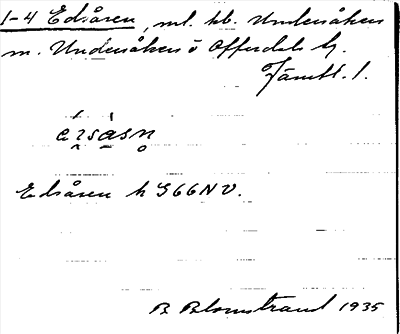 1-4 Edsåsen, ml. kb. Undersåkers
m. Undersåkers o Offerdals tg.
Jämtl. l.
Edsåsen h 566 NV.
B Blomstrand 1935